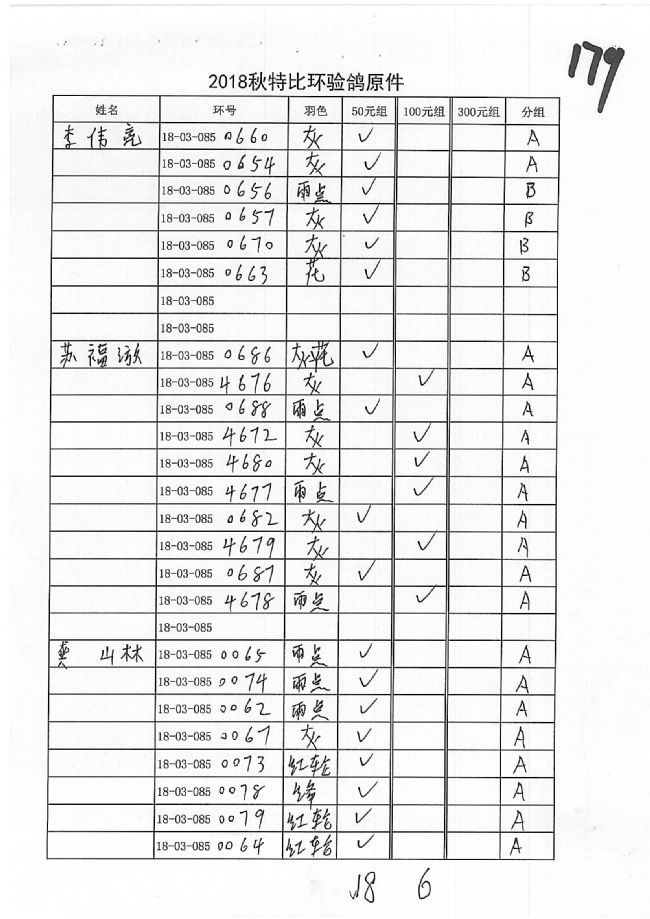 179
2018秋特比环验鸽原件
姓名 环号 羽色 50元组 100元组 300元组 分组
李伟亮 18-03-085 0660 灰 ✓ A
18-03-085 0654 灰 ✓ A
18-03-085 0656 雨点 ✓ B
18-03-085 0657 灰 ✓ B
18-03-085 0670 灰 ✓ B
18-03-085 0663 花 ✓ B
18-03-085
18-03-085
苏福 18-03-085 0686 灰花 ✓ A
18-03-085 4676 灰 ✓ A
18-03-085 0688 雨点 ✓ A
18-03-085 4672 灰 ✓ A
18-03-085 4680 灰 ✓ A
18-03-085 4677 雨点 ✓ A
18-03-085 0682 灰 ✓ A
18-03-085 4679 灰 ✓ A
18-03-085 0687 灰 ✓ A
18-03-085 4678 雨点 ✓ A
18-03-085
山林 18-03-085 0065 雨点 ✓ A
18-03-085 0074 雨点 ✓ A
18-03-085 0062 雨点 ✓ A
18-03-085 0067 灰 ✓ A
18-03-085 0073 红轮 ✓ A
18-03-085 0078 ✓ A
18-03-085 0079 红轮 ✓ A
18-03-085 0064 红轮 ✓ A
18 6